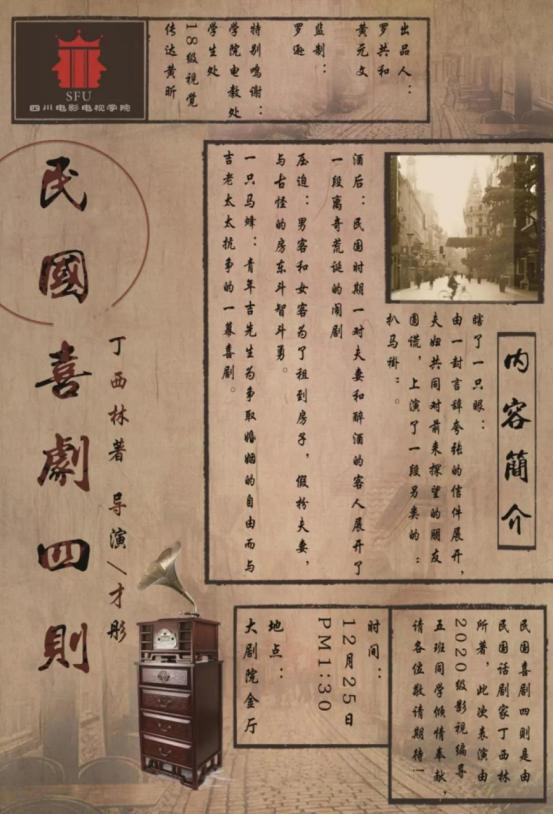 SFU
四川电影电视学院
出品人：
罗共和
黄元文
监制：
罗逊
特别鸣谢：
学院电教处
学生处
18级视觉
传达黄昕
民國喜劇四則
丁西林著 导演／才彤
内容簡介
瞎了一只眼：
由一封言辞夸张的信件展开，
夫妇共同对前来探望的朋友
圆谎，上演了一段另类的：
扒马褂：。
酒后：民国时期一对夫妻和醉酒的客人展开了
一段离奇荒诞的闹剧
压迫：男客和女客为了租到房子，假扮夫妻，
与古怪的房东斗智斗勇。
一只马蜂：青年吉先生为争取婚姻的自由而与
吉老太太抗争的一幕喜剧。
民国喜剧四则是由
民国话剧家丁西林
所著，此次表演由
2020级影视编导
五班同学倾情奉献，
请各位敬请期待！
时间：
12月25日
PM1:30
地点：
大剧院金厅